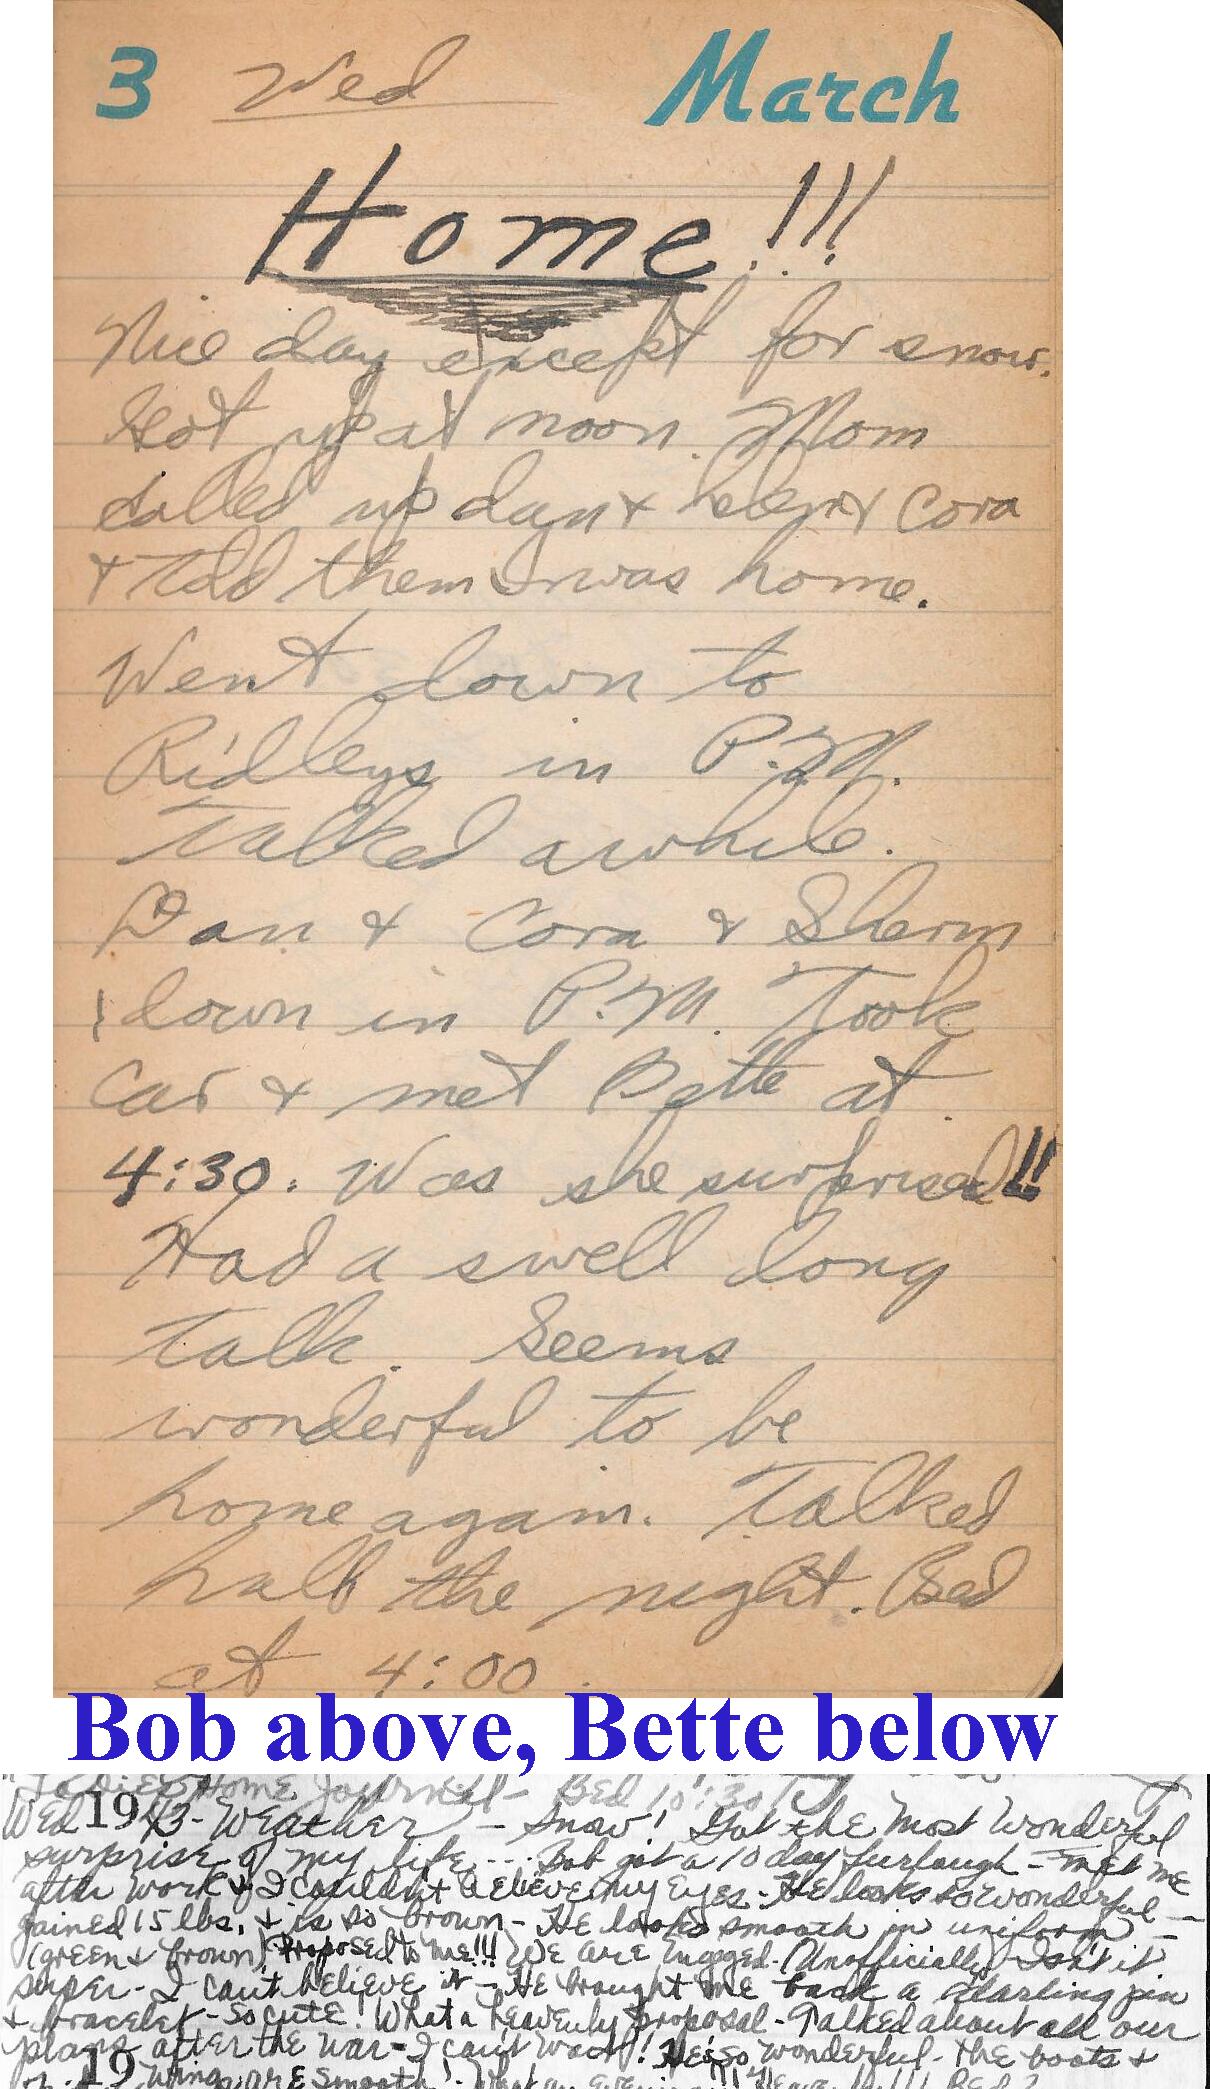 3 Wed March
Home!!!
Nice day except for snow.
Got up at noon. Mom
called up Dan & & Cora
& told them I was home.
Went down to
Ridleys in P.M.
Talked awhile.
Dan & Cora & Sherm
down in P.M. Took
car & met Bette at
4:30. Was she surprised!!
Had a swell long
talk. Seems
wonderful to be
home again. Talked
half the night. Bed
at 4:00.
Bob above, Bette below
Ladies Home Journal - Bed 10:30
Wed 1943 - Weather - Snow! Got the most wonderful
surprise of my life... Bob got a 10 day furlough - met me
after work & I couldn't believe my eyes - He looks so wonderful -
gained 15 lbs. & is so brown - He looks smooth in uniform -
(green & brown) Proposed to me!!! We are engaged. (Unofficially) Isn't it
super - I can't believe it - He brought me back a darling pin
& bracelet - so cute! What a heavenly proposal - Talked about all our
plans after the war - I can't wait! He's so wonderful - the boots &
19 wings are smooth! What an evening!!!